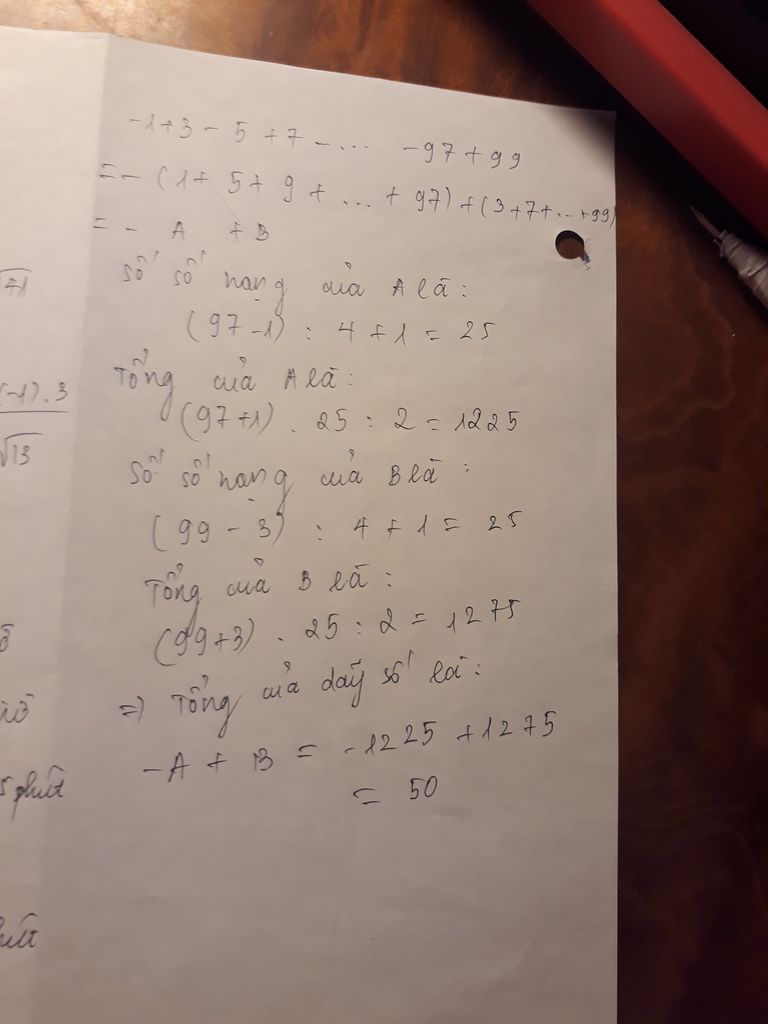 -1+3-5+7-... -97+99
=-(1+5+9+...+97)+(3+7+...+99)
= - A + B
Số số hạng của A là:
(97-1) : 4 + 1 = 25
Tổng của A là:
(97+1) . 25 : 2 = 1225
Số số hạng của B là :
(99 - 3) : 4 + 1 = 25
Tổng của B là :
(99+3) . 25 : 2 = 1275
=> Tổng của dãy số là :
-A + B = -1225 + 1275
= 50
√71
(-1).3
√13
5 phút